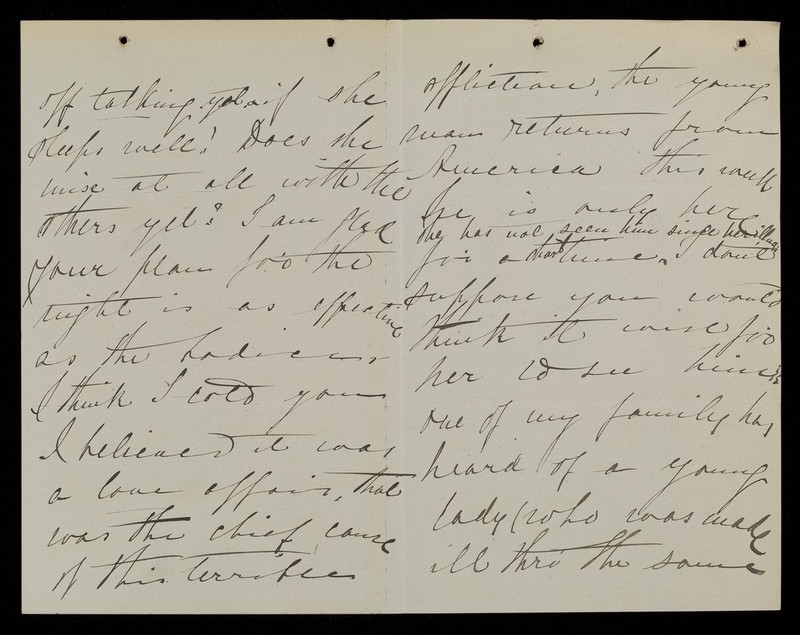 off talking yet & if she
sleeps well! Does she
mix at all with the
others yet? I am glad
your plan for the
night is as effective
as the bodices.
I think I told you
I believed it was
a love affair, that
was the chief cause
of this terrible
affliction, the young
man returns from
America this week
he is only here
she has not seen him since her illness
for a short time, I don't
suppose you would
think it wise for
her to see him?
one of my family has
heard of a young
lady (who was made
ill thro' the same